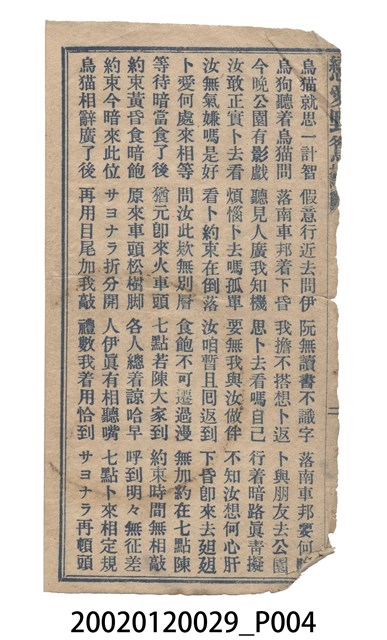 烏猫就思一計智 假意行近去問伊 阮無讀書不識字 落南車邦要何
烏狗聽着烏猫問 落南車邦着下昏 我擔不搭想卜返 卜與朋友去公園
今晚公園有影戲 聽見人廣我知機 思卜去看嗎自己 行着暗路眞靑擬
汝敢正實卜去看 煩惱卜去嗎孤單 要無我與汝做伴 不知汝想何心肝
汝無氣嫌嗎是好 看卜約束在倒落 汝咱暫且囘返到 下昏卽來去
卜愛何處來相等 問汝此欵無別層 食飽不可遷過漫 無加約在七點陳
等待暗當食了後 猶元卽來火車頭 七點若陳大家到 約束時間無相敲
約束黃昏食暗飽 原來車頭松樹脚 各人總着諒哈早 呼到明々無征差
約束今暗來此位 サヨナラ折分開 人伊眞有相聽嘴 七點卜來相定規
烏猫相辭廣了後 再用目尾加我敲 禮數我着用恰到 サヨナラ再頓頭
20020120029_P004